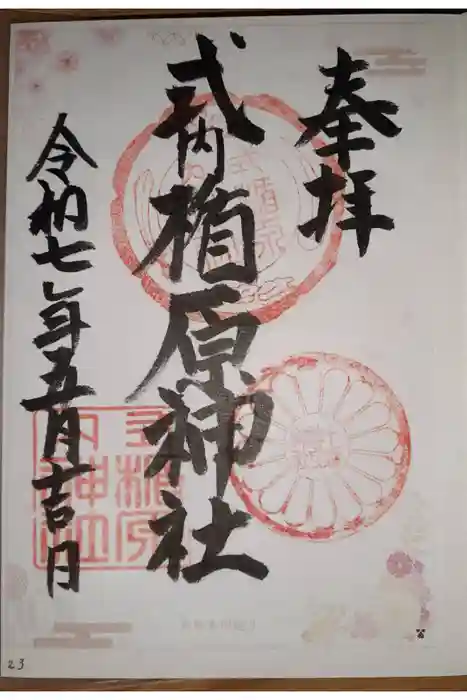 奉拝
式内楯原神社
令和七年五月吉日
23